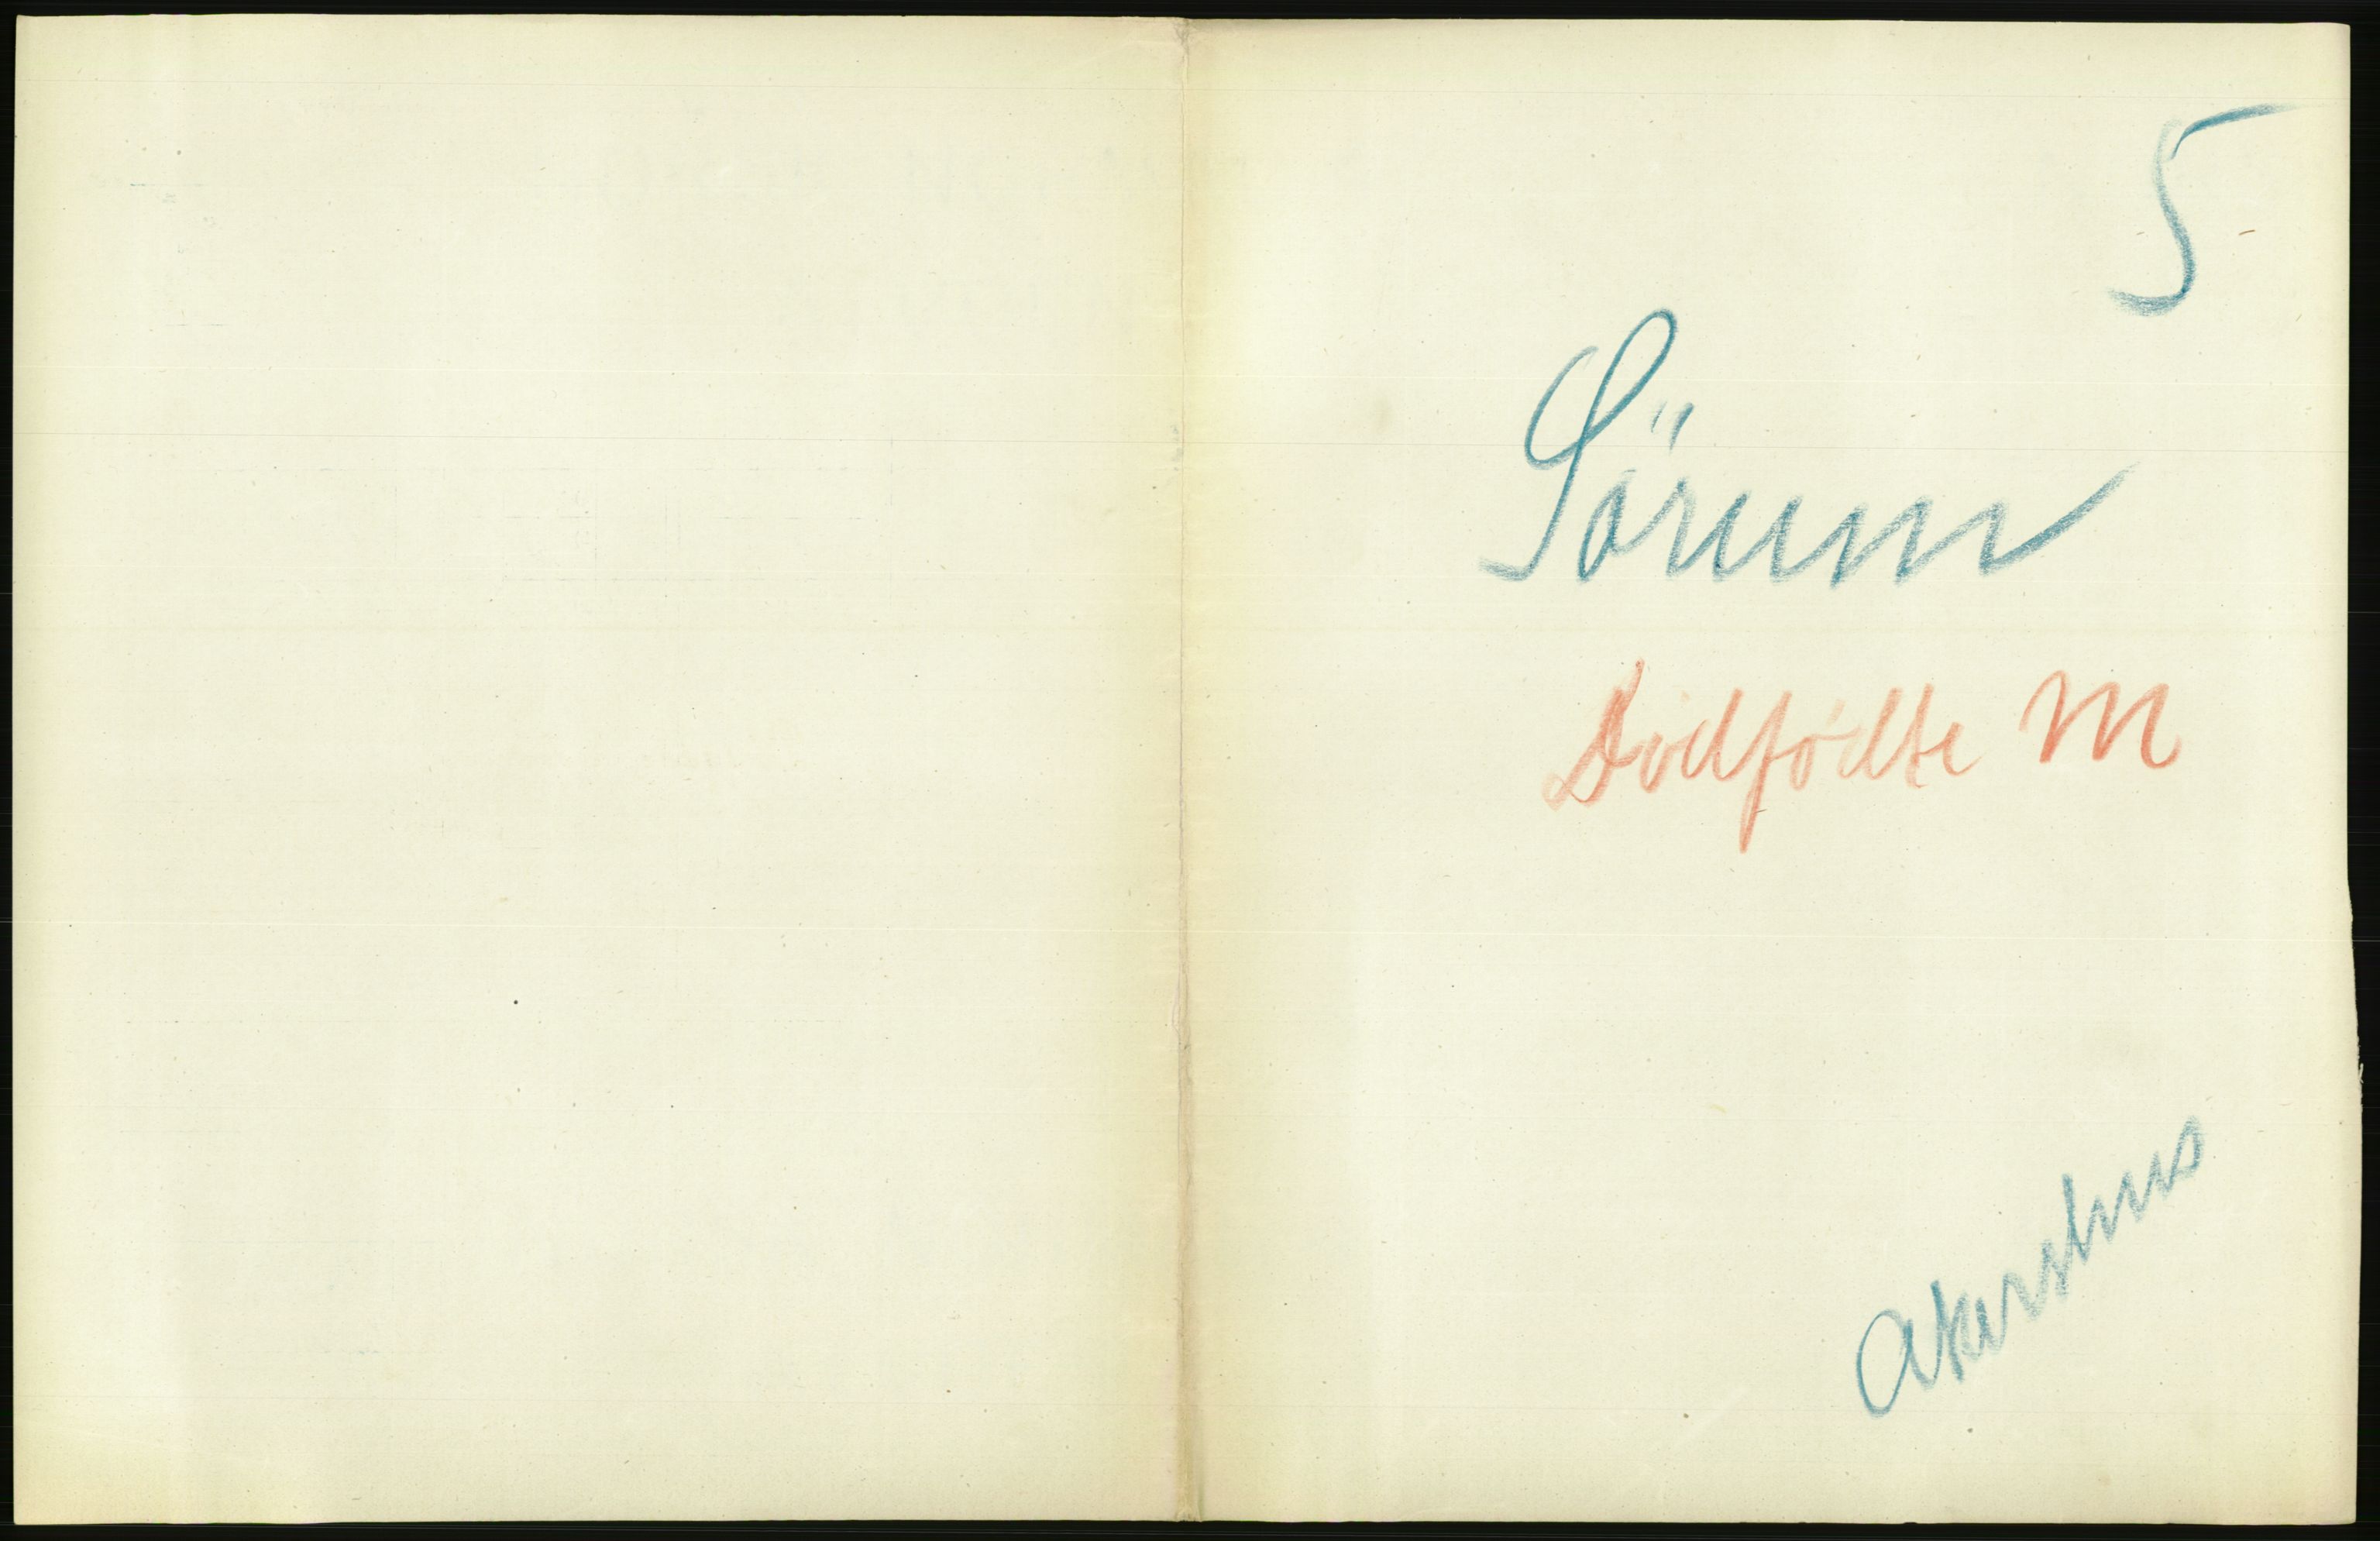 5
Sörum
Dødfødte M
Akershus